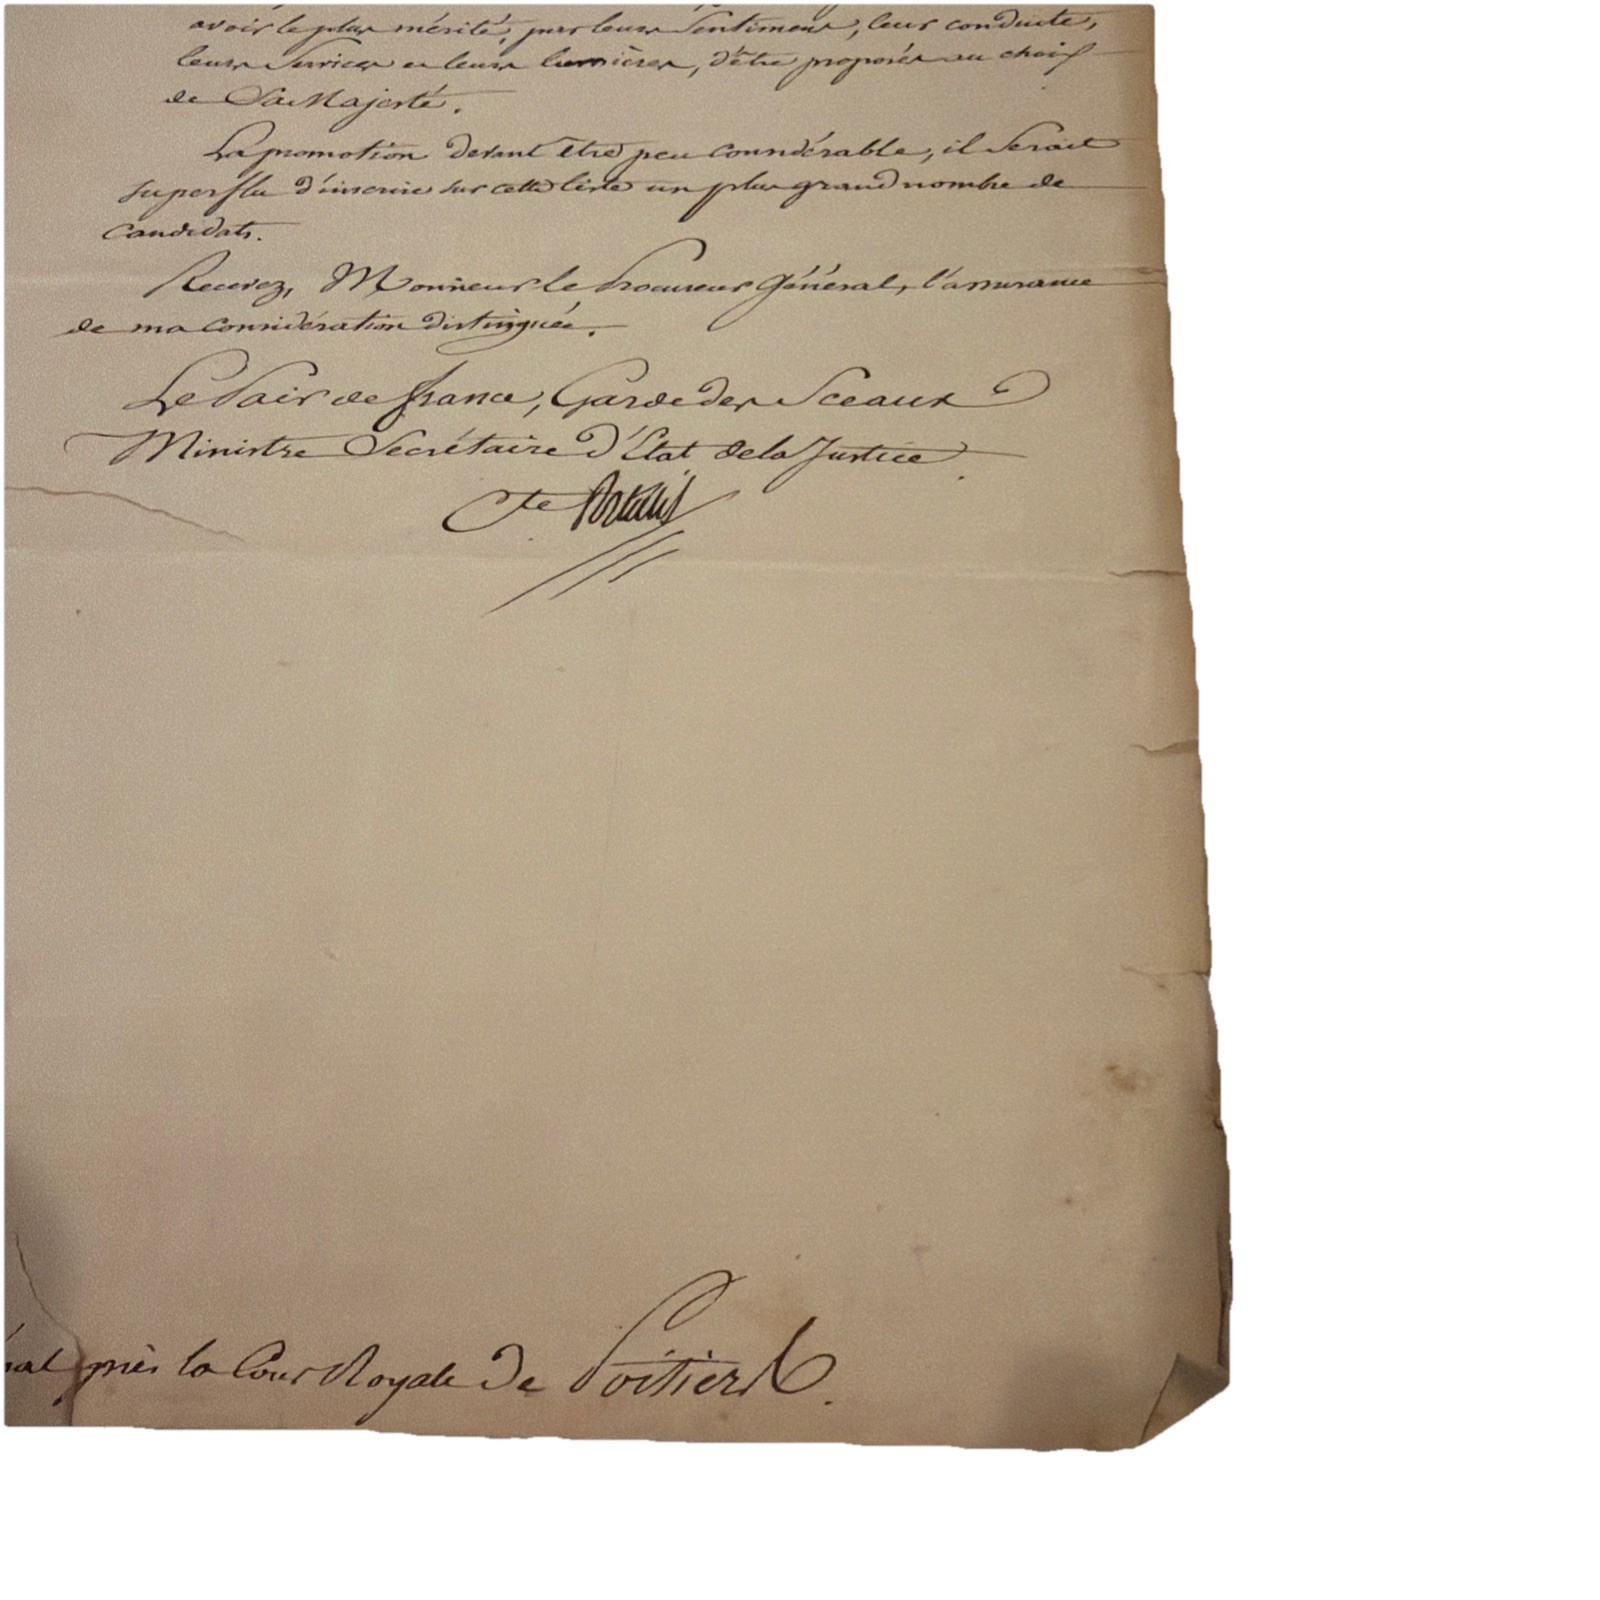 avoir le plus mérité, par leurs Sentimens, leur conduite,
leurs Services et leurs lumières, d'être proposés au choix
de Sa Majesté.
La promotion devant être peu considérable, il Serait
superflu d'inscrire sur cette liste un plus grand nombre de
Candidats.
Recevez, Monsieur le Procureur Général, l'assurance
de ma considération distinguée.
Le Pair de france, Garde des Sceaux
Ministre Secrétaire d'Etat de la Justice.
Cte Portalis
près la Cour Royale de Poitiers.